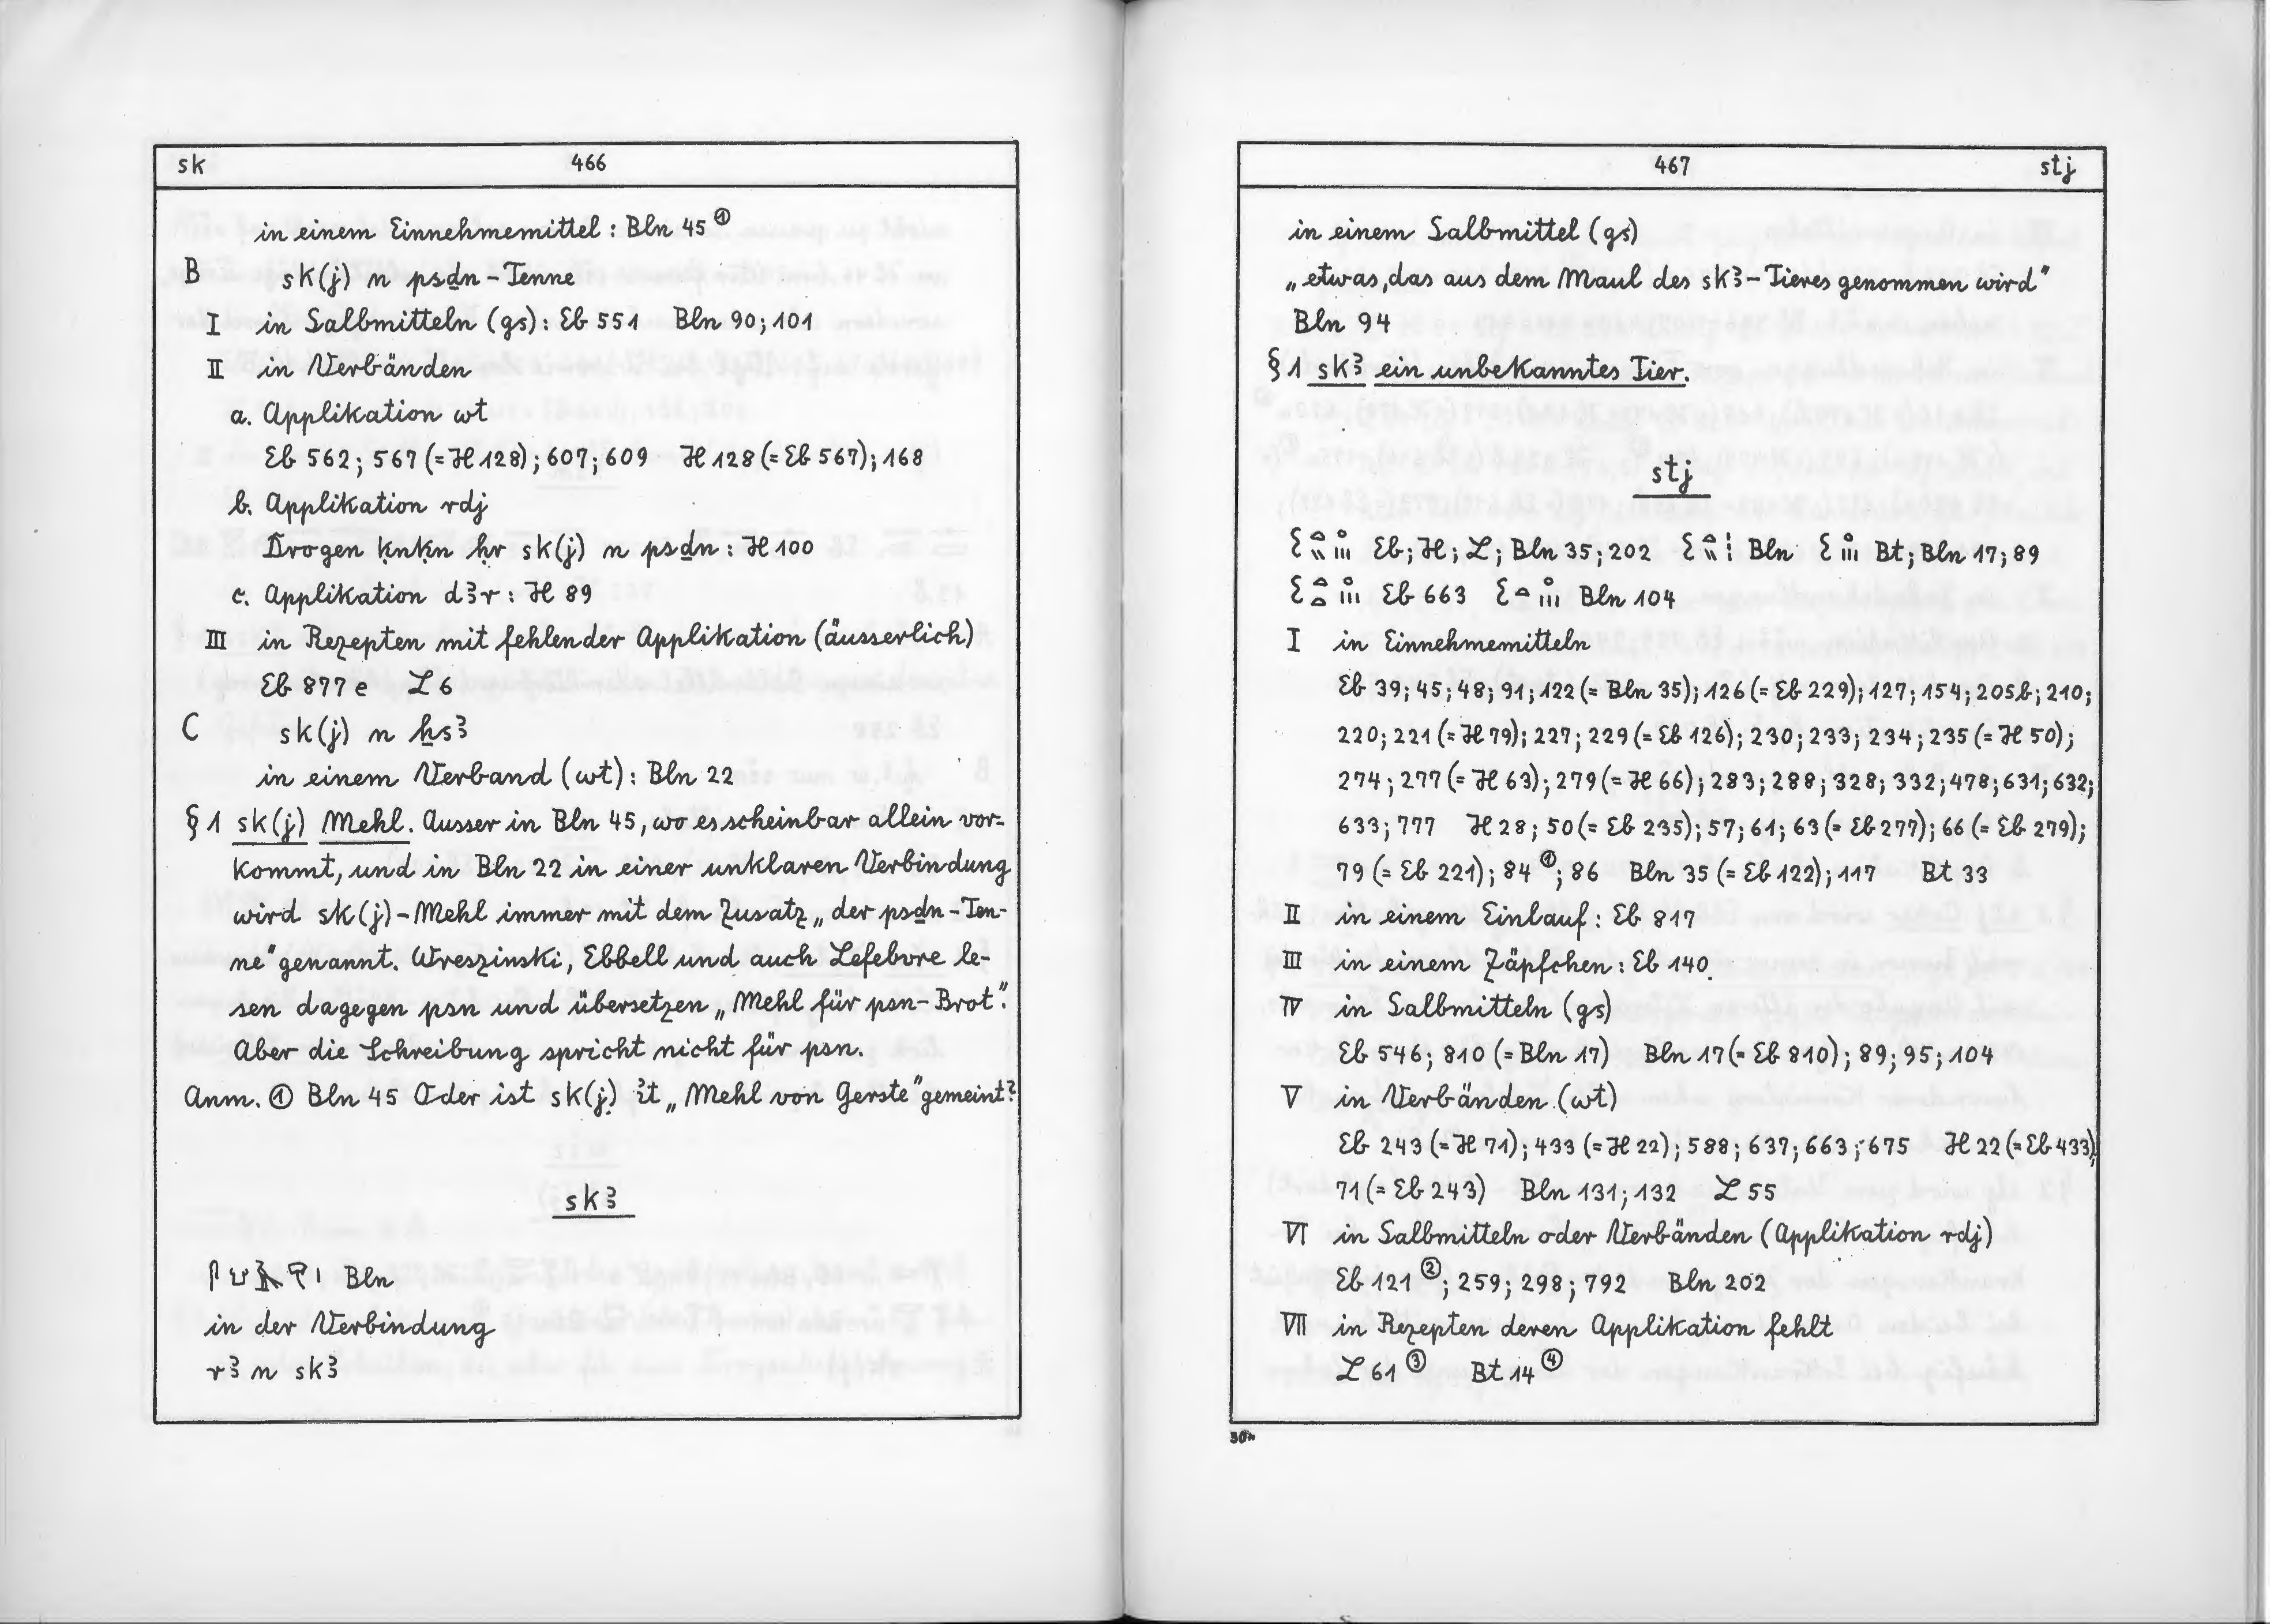 sk 466
in einem Einnehmemittel : Bln 45 ①
B sk(j) n psḏn - Tenne
I in Salbmitteln (gs) : Eb 551 Bln 90; 101
II in Verbänden
a. Applikation wt
Eb 562; 567 (= H 128); 607; 609 H 128 (= Eb 567); 168
b. Applikation rdj
Drogen ḳnḳn ḥr sk(j) n psḏn : H 100
c. Applikation dꜣr : H 89
III in Rezepten mit fehlender Applikation (äusserlich)
Eb 877 e L 6
C sk(j) n ẖsꜣ
in einem Verband (wt) : Bln 22
§ 1 sk(j) Mehl. Ausser in Bln 45, wo es scheinbar allein vor-
kommt, und in Bln 22 in einer unklaren Verbindung
wird sk(j) - Mehl immer mit dem Zusatz „der psḏn - Ten-
ne" genannt. Wreszinski, Ebbell und auch Lefebvre le-
sen dagegen psn und übersetzen „Mehl für psn - Brot".
Aber die Schreibung spricht nicht für psn.
Anm. ① Bln 45 Oder ist sk(j) it „Mehl von Gerste" gemeint?
skꜣ
Bln
in der Verbindung
rꜣ n skꜣ
467 stj
in einem Salbmittel (gs)
„etwas, das aus dem Maul des skꜣ - Tieres genommen wird"
Bln 94
§ 1 skꜣ ein unbekanntes Tier.
stj
Eb; H; L; Bln 35; 202 Bln Bt; Bln 17; 89
Eb 663 Bln 104
I in Einnehmemitteln
Eb 39; 45; 48; 91; 122 (= Bln 35); 126 (= Eb 229); 127; 154; 205b; 210;
220; 221 (= H 79); 227; 229 (= Eb 126); 230; 233; 234; 235 (= H 50);
274; 277 (= H 63); 279 (= H 66); 283; 288; 328; 332; 478; 631; 632;
633; 777 H 28; 50 (= Eb 235); 57; 61; 63 (= Eb 277); 66 (= Eb 279);
79 (= Eb 221); 84 ①; 86 Bln 35 (= Eb 122); 117 Bt 33
II in einem Einlauf : Eb 817
III in einem Zäpfchen : Eb 140
IV in Salbmitteln (gs)
Eb 546; 810 (= Bln 17) Bln 17 (= Eb 810); 89; 95; 104
V in Verbänden (wt)
Eb 243 (= H 71); 433 (= H 22); 588; 637; 663; 675 H 22 (= Eb 433);
71 (= Eb 243) Bln 131; 132 L 55
VI in Salbmitteln oder Verbänden (Applikation rdj)
Eb 121 ②; 259; 298; 792 Bln 202
VII in Rezepten deren Applikation fehlt
L 61 ③ Bt 14 ④
30*